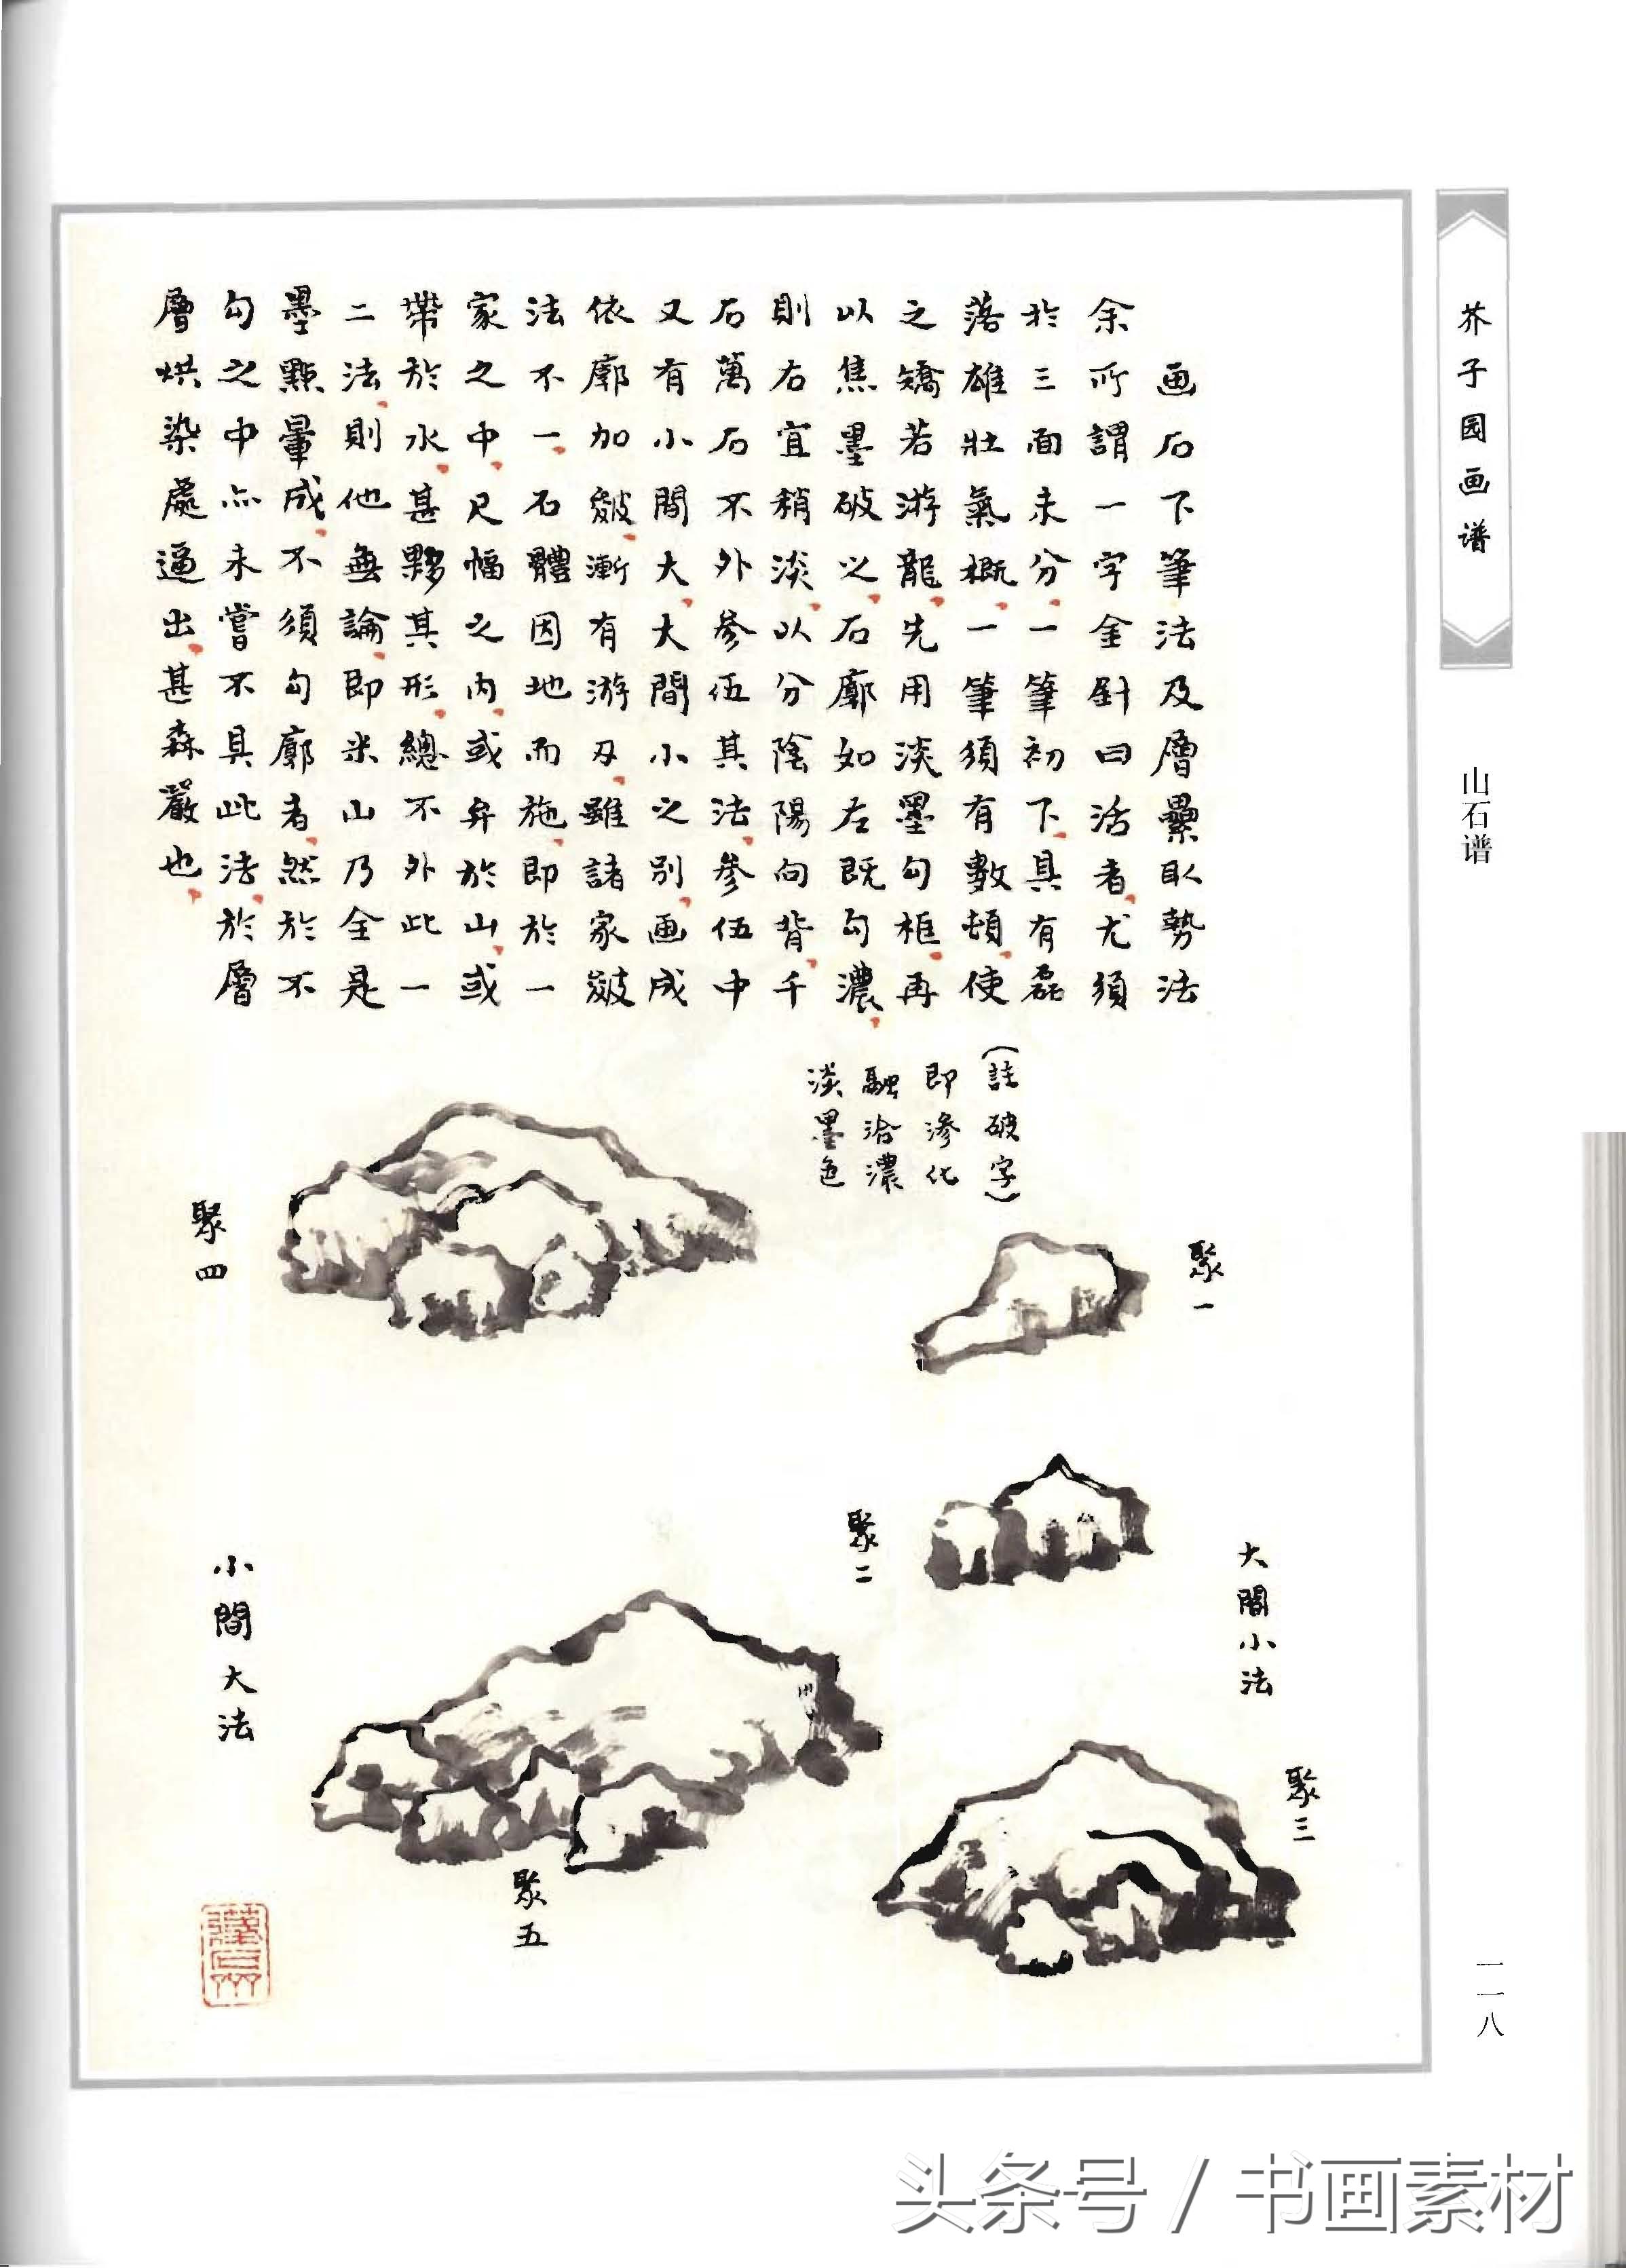 芥子园画谱
山石谱
一一八
画石下筆法及層纍取勢法
余所謂一字金針曰活者尤須
於三面未分一筆初下具有磊
落雄壯氣概一筆須有數頓使
之矯若游龍先用淡墨勾框再
以焦墨破之石廓如左既勾濃
則右宜稍淡以分陰陽向背千
石萬石不外參伍其法參伍中
又有小間大大間小之別画成
依廓加皴漸有游刃雖諸家皴
法不一石體因地而施即於一
家之中尺幅之內或弁於山或
帶於水甚夥其形總不外此一
二法則他無論即米山乃全是
墨點暈成不須勾廓者然於不
勾之中亦未嘗不具此法於層
層烘染處逼出甚森嚴也
(註破字)
即滲化
融洽濃
淡墨色
聚一
聚二
大間小法
聚三
聚四
小間大法
聚五
头条号 / 书画素材